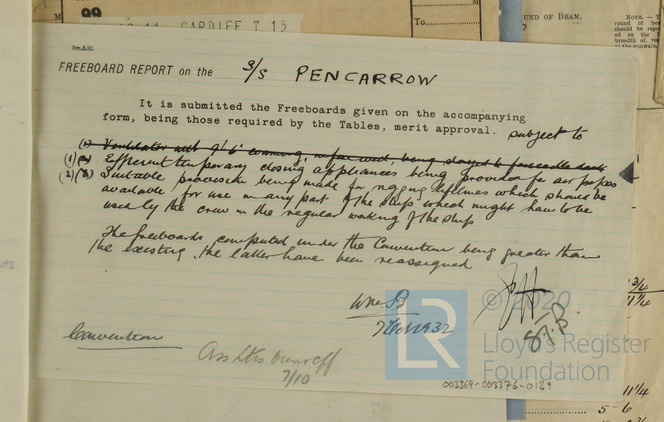 CARDIFF T 13
To
UND OF BEAM.
NOTE. — T
round of be
should be repo
ed on the
breadth of ve
FREEBOARD REPORT on the S/S PENCARROW
It is submitted the Freeboards given on the accompanying
form, being those required by the Tables, merit approval. subject to
(1) Ventilator with 9'6" coaming, in fore well, being stayed to forecastle deck
(1) (2) Efficient temporary closing appliances being provided for air pipes
(2) (3) Suitable provision being made for rigging lifelines which should be
available for use in any part of the ship which might have to be
used by the crew in the regular working of the ship
The freeboards computed under the Convention being greater than
the existing, the latter have been reassigned
Wm B
7 Oct 1932
Convention
Ass Ltrs
7/10
LR
© 2020
Lloyd's Register
Foundation
003369-003376-0189
3/4
11 1/4
11 1/4
5 - 6